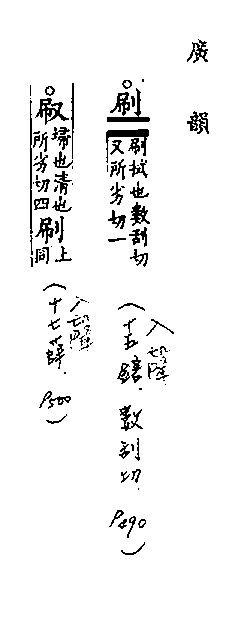 廣韻
○刷
刷拭也數刮切
又所劣切一
(入聲
十五鎋 數刮切 P490)
○㕞
埽也清也
所劣切四
刷
上
同
(入聲
十七薛 P500)